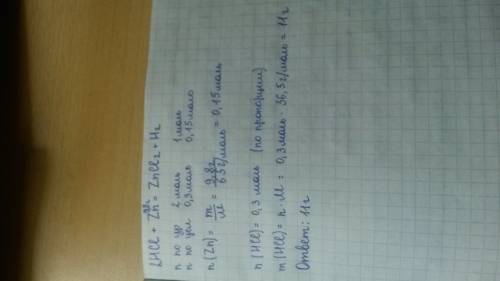 2HCl + Zn = ZnCl2 + H2
n по ур 2 моль 1 моль
n по усл 0,3 моль 0,15 моль
n (Zn) = m/M = 9,8г/65г/моль = 0,15 моль
n (HCl) = 0,3 моль (по пропорции)
m (HCl) = n · M = 0,3 моль · 36,5 г/моль = 11 г
Ответ: 11 г